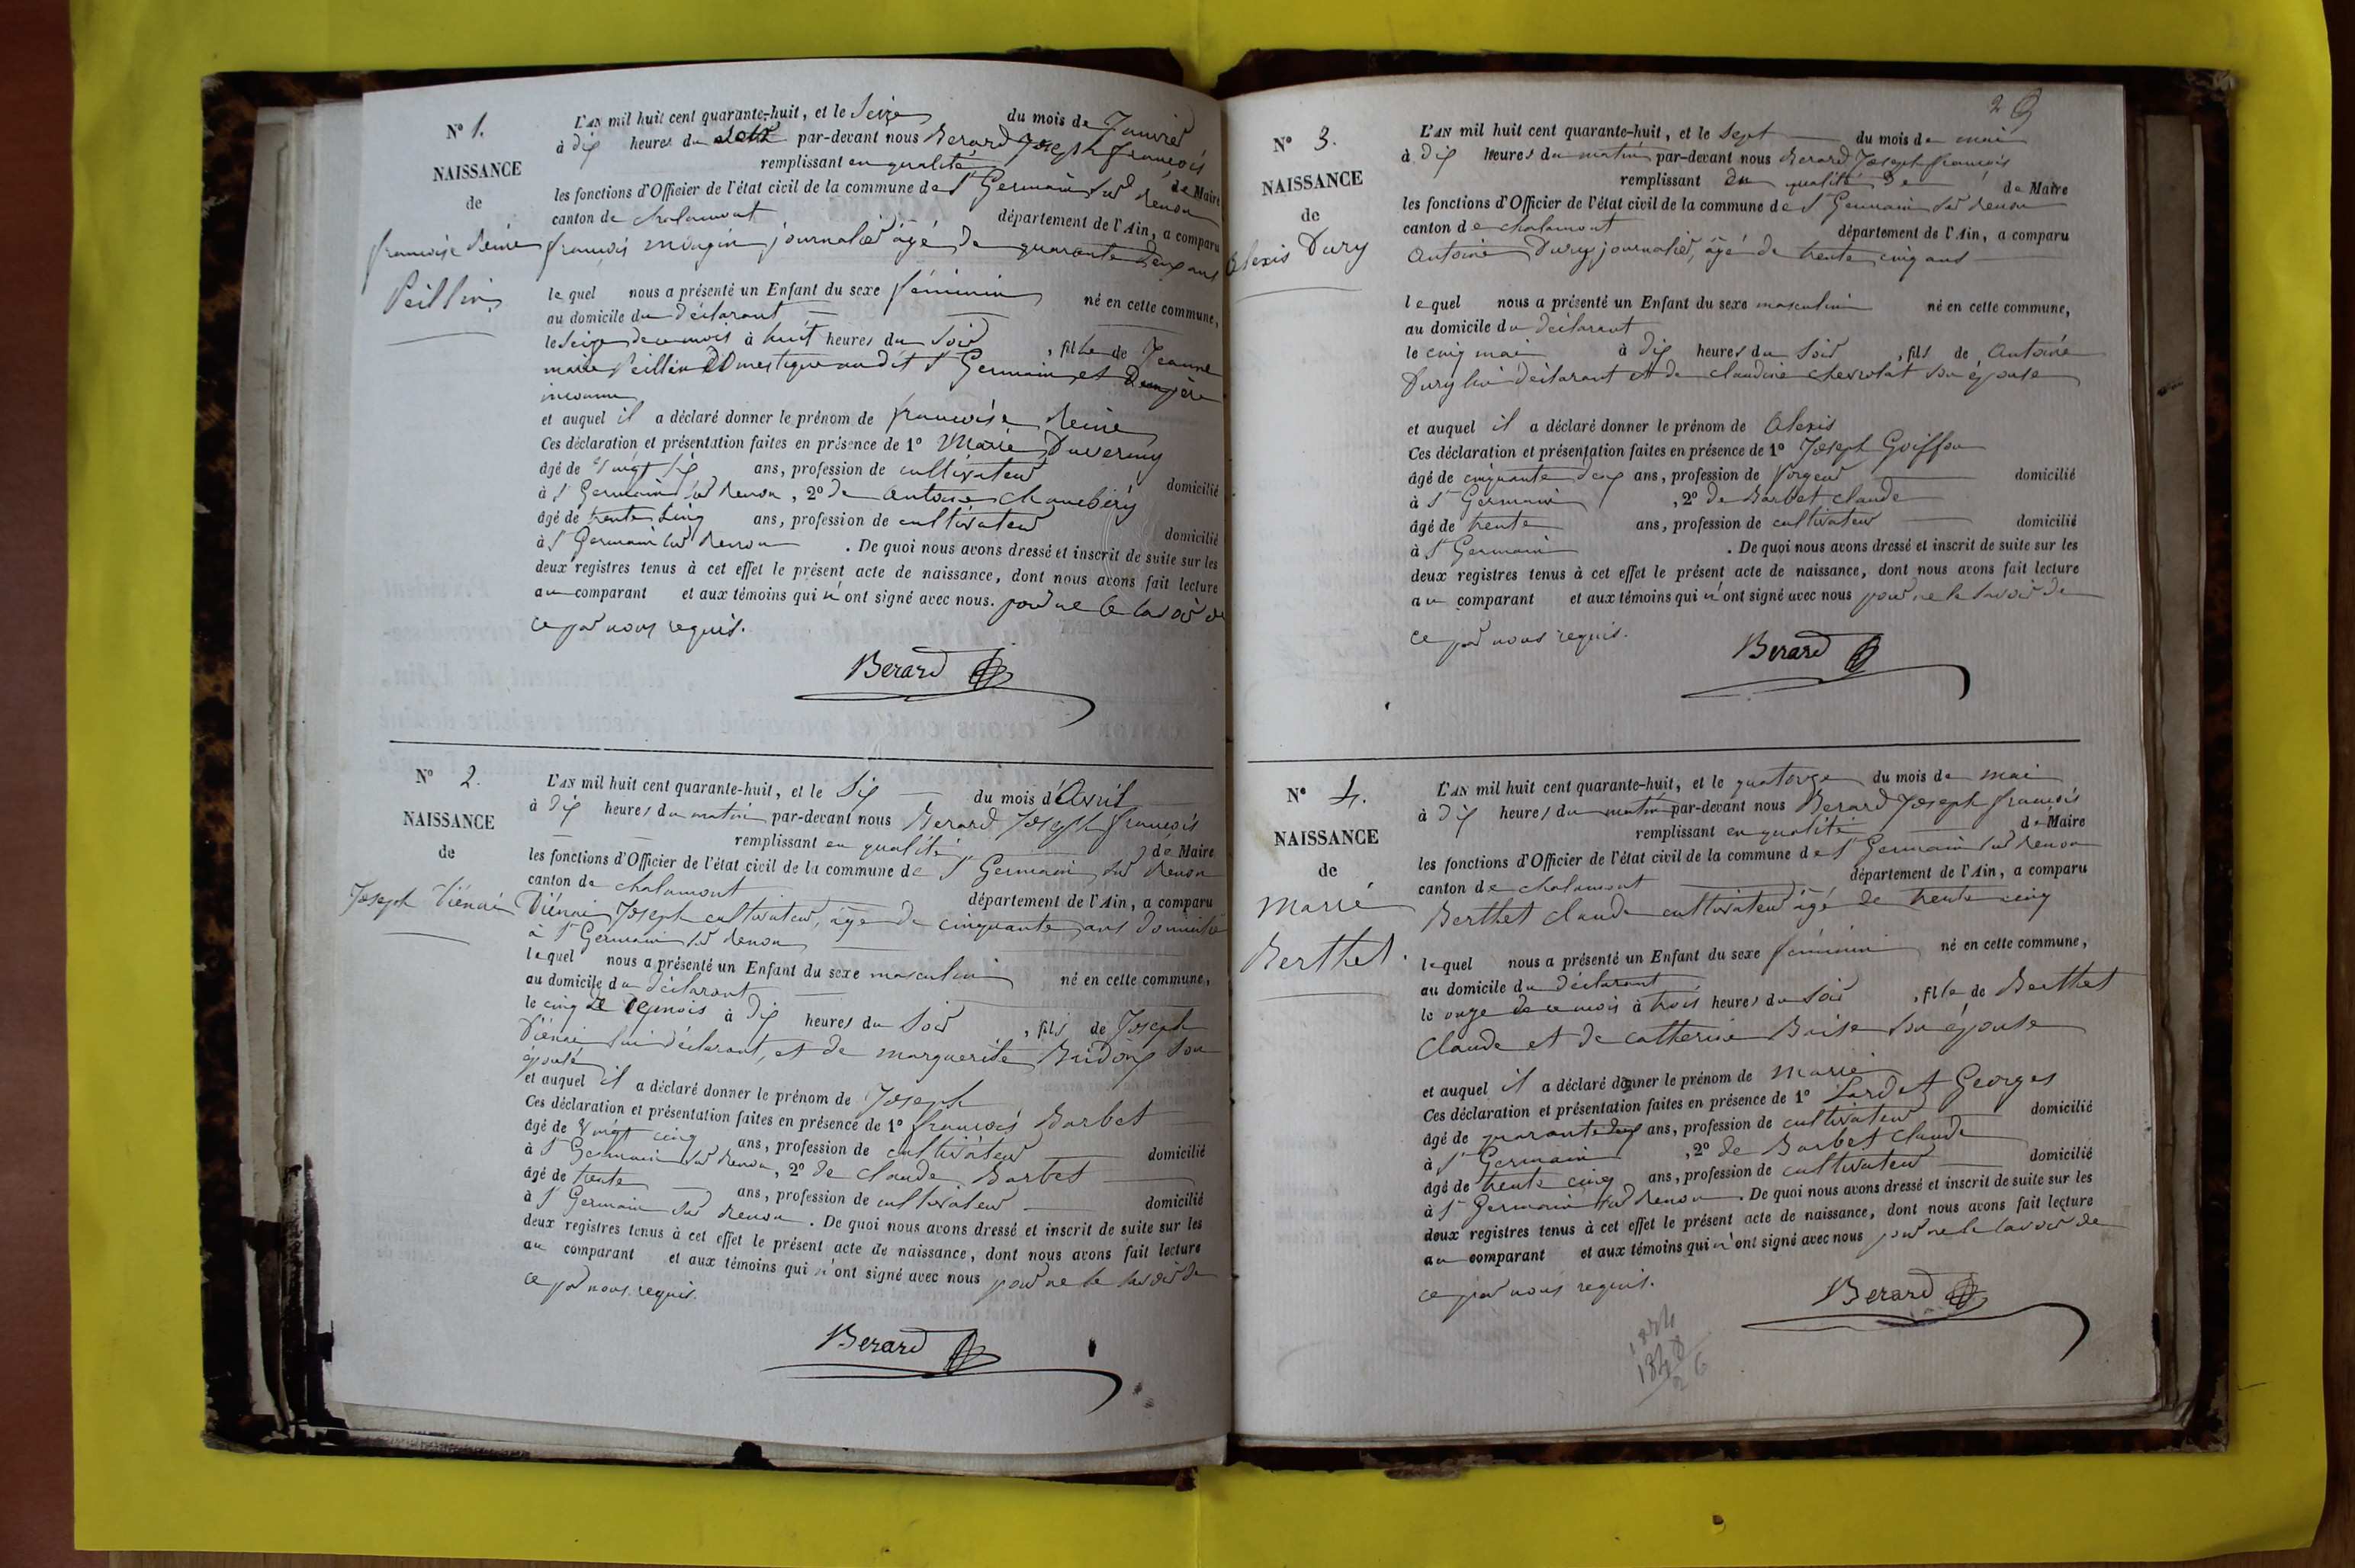 N° 1.
NAISSANCE
de
françoise Reine
Peillin
L'AN mil huit cent quarante-huit, et le Seize du mois de Janvier
à dix heures du par-devant nous Berard Joseph françois
remplissant en qualité de Maire
les fonctions d'Officier de l'état civil de la commune de St Germain sur Renon
canton de chalamont département de l'Ain, a comparu
françois mingin journalier âgé de quarante deux ans
lequel nous a présenté un Enfant du sexe féminin né en cette commune,
au domicile du déclarant
le Seize de ce mois à huit heures du Soir, fille de Jeanne
marie Peillin Domestique au dit St Germain et D'un père
inconnu
et auquel il a déclaré donner le prénom de françoise Reine
Ces déclaration et présentation faites en présence de 1° Marie Duverny
âgé de vingt six ans, profession de cultivateur domicilié
à St Germain sur Renon, 2° de antoine Chambéry
âgé de trente Cinq ans, profession de cultivateur domicilié
à St Germain sur Renon. De quoi nous avons dressé et inscrit de suite sur les
deux registres tenus à cet effet le présent acte de naissance, dont nous avons fait lecture
au comparant et aux témoins qui n'ont signé avec nous. pour ne le savoir de
ce par nous requis.
Berard
N° 2.
NAISSANCE
de
Joseph Viénai
L'AN mil huit cent quarante-huit, et le Six du mois d'Avril
à dix heures du matin par-devant nous Berard Joseph françois
remplissant en qualité de Maire
les fonctions d'Officier de l'état civil de la commune de St Germain sur Renon
canton de chalamont département de l'Ain, a comparu
Viénai Joseph cultivateur, âgé de cinquante ans domicilié
à St Germain sur Renon
lequel nous a présenté un Enfant du sexe masculin né en cette commune,
au domicile du déclarant
le cinq de ce mois à dix heures du Soir, fils de Joseph
Viénai lui déclarant, et de marguerite son
épouse
et auquel il a déclaré donner le prénom de Joseph
Ces déclaration et présentation faites en présence de 1° françois Barbet
âgé de vingt cinq ans, profession de cultivateur domicilié
à St Germain sur Renon, 2° de claude Barbet
âgé de trente ans, profession de cultivateur domicilié
à St Germain sur Renon. De quoi nous avons dressé et inscrit de suite sur les
deux registres tenus à cet effet le présent acte de naissance, dont nous avons fait lecture
au comparant et aux témoins qui n'ont signé avec nous pour ne le savoir de
ce par nous requis.
Berard
N° 3.
NAISSANCE
de
Alexis Dury
L'AN mil huit cent quarante-huit, et le Sept du mois de mai
à dix heures du matin par-devant nous Berard Joseph françois
remplissant en qualité de de Maire
les fonctions d'Officier de l'état civil de la commune de St Germain sur Renon
canton de chalamont département de l'Ain, a comparu
Antoine Dury journalier, âgé de trente cinq ans
lequel nous a présenté un Enfant du sexe masculin né en cette commune,
au domicile du déclarant
le cinq mai à dix heures du Soir, fils de Antoine
Dury lui déclarant et de claudine chevrolat son épouse
et auquel il a déclaré donner le prénom de Alexis
Ces déclaration et présentation faites en présence de 1° Joseph Goiffon
âgé de cinquante deux ans, profession de forgeur domicilié
à St Germain, 2° de Barbet claude
âgé de trente ans, profession de cultivateur domicilié
à St Germain. De quoi nous avons dressé et inscrit de suite sur les
deux registres tenus à cet effet le présent acte de naissance, dont nous avons fait lecture
au comparant et aux témoins qui n'ont signé avec nous pour ne le savoir de
ce par nous requis.
Berard
N° 4.
NAISSANCE
de
Marie
Berthet.
L'AN mil huit cent quarante-huit, et le quatorze du mois de mai
à dix heures du matin par-devant nous Berard Joseph françois
remplissant en qualité de Maire
les fonctions d'Officier de l'état civil de la commune de St Germain sur Renon
canton de chalamont département de l'Ain, a comparu
Berthet claude cultivateur âgé de trente cinq
lequel nous a présenté un Enfant du sexe féminin né en cette commune,
au domicile du déclarant
le onze de ce mois à trois heures du Soir, fille de Berthet
Claude et de catherine Boise son épouse
et auquel il a déclaré donner le prénom de marie
Ces déclaration et présentation faites en présence de 1° Lardet Georges
âgé de quarante deux ans, profession de cultivateur domicilié
à St Germain, 2° de Barbet Claude
âgé de trente cinq ans, profession de cultivateur domicilié
à St Germain sur Renon. De quoi nous avons dressé et inscrit de suite sur les
deux registres tenus à cet effet le présent acte de naissance, dont nous avons fait lecture
au comparant et aux témoins qui n'ont signé avec nous pour ne le savoir de
ce par nous requis.
Berard
1874
1848
26